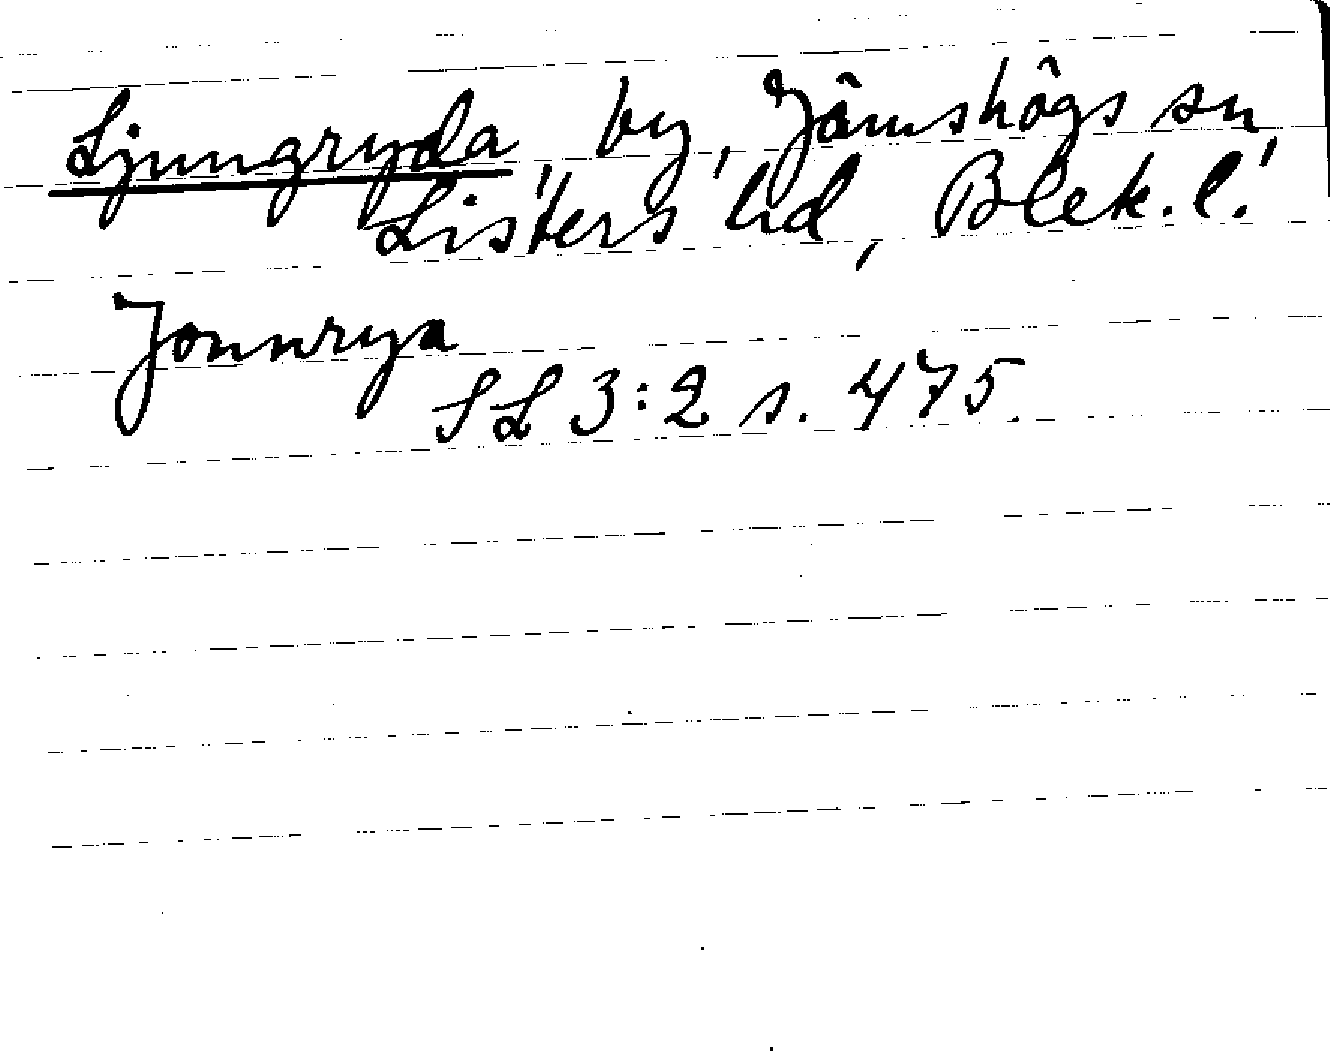 Ljungryda, by, Jämshögs sn,
Listers hd, Blek. l.
Jonnrya
SL 3:2 s. 475.